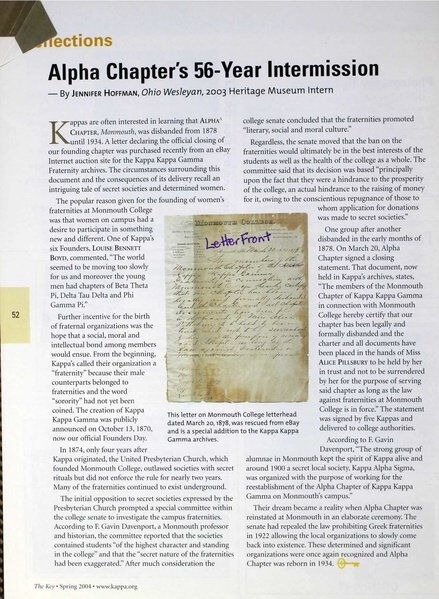 llections
Alpha Chapter's 56-Year Intermission
— By JENNIFER HOFFMAN, Ohio Wesleyan, 2003 Heritage Museum Intern
Kappas are often interested in learning that ALPHA^
CHAPTER, Monmouth, was disbanded from 1878
until 1934. A letter declaring the official closing of
our founding chapter was purchased recently from an eBay
Internet auction site for the Kappa Kappa Gamma
Fraternity archives. The circumstances surrounding this
document and the consequences of its delivery recall an
intriguing tale of secret societies and determined women.
The popular reason given for the founding of women's
fraternities at Monmouth College
was that women on campus had a
desire to participate in something
new and different. One of Kappa's
six Founders, LOUISE BENNETT
BOYD, commented, "The world
seemed to be moving too slowly
for us and moreover the young
men had chapters of Beta Theta
Pi, Delta Tau Delta and Phi
Gamma Pi."
Further incentive for the birth
of fraternal organizations was the
hope that a social, moral and
intellectual bond among members
would ensue. From the beginning,
Kappa's called their organization a
"fraternity" because their male
counterparts belonged to
fraternities and the word
"sorority" had not yet been
coined. The creation of Kappa
Kappa Gamma was publicly
announced on October 13, 1870,
now our official Founders Day.
In 1874, only four years after
Kappa originated, the United Presbyterian Church, which
founded Monmouth College, outlawed societies with secret
rituals but did not enforce the rule for nearly two years.
Many of the fraternities continued to exist underground.
The initial opposition to secret societies expressed by the
Presbyterian Church prompted a special committee within
the college senate to investigate the campus fraternities.
According to F. Gavin Davenport, a Monmouth professor
and historian, the committee reported that the societies
contained students "of the highest character and standing
in the college" and that the "secret nature of the fraternities
had been exaggerated." After much consideration the
MONMOUTH COLLEGE
Letter Front
This letter on Monmouth College letterhead
dated March 20, 1878, was rescued from eBay
and is a special addition to the Kappa Kappa
Gamma archives.
college senate concluded that the fraternities promoted
"literary, social and moral culture."
Regardless, the senate moved that the ban on the
fraternities would ultimately be in the best interests of the
students as well as the health of the college as a whole. The
committee said that its decision was based "principally
upon the fact that they were a hindrance to the prosperity
of the college, an actual hindrance to the raising of money
for it, owing to the conscientious repugnance of those to
whom application for donations
was made to secret societies."
One group after another
disbanded in the early months of
1878. On March 20, Alpha
Chapter signed a closing
statement. That document, now
held in Kappa's archives, states,
"The members of the Monmouth
Chapter of Kappa Kappa Gamma
in connection with Monmouth
College hereby certify that our
chapter has been legally and
formally disbanded and the
charter and all documents have
been placed in the hands of Miss
ALICE PILLSBURY to be held by her
in trust and not to be surrendered
by her for the purpose of serving
said chapter as long as the law
against fraternities at Monmouth
College is in force." The statement
was signed by five Kappas and
delivered to college authorities.
According to F. Gavin
Davenport, "The strong group of
alumnae in Monmouth kept the spirit of Kappa alive and
around 1900 a secret local society, Kappa Alpha Sigma,
was organized with the purpose of working for the
reestablishment of the Alpha Chapter of Kappa Kappa
Gamma on Monmouth's campus."
Their dream became a reality when Alpha Chapter was
reinstated at Monmouth in an elaborate ceremony. The
senate had repealed the law prohibiting Greek fraternities
in 1922 allowing the local organizations to slowly come
back into existence. These determined and significant
organizations were once again recognized and Alpha
Chapter was reborn in 1934.
52
The Key • Spring 2004 • www.kappa.org